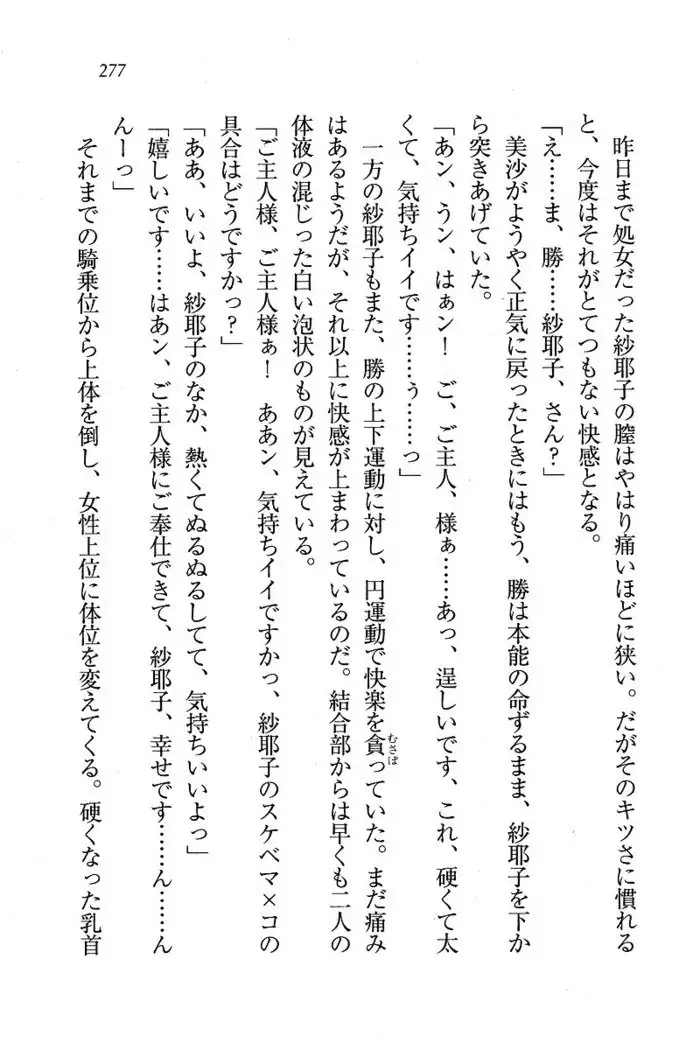 277
昨日まで処女だった紗耶子の膣はやはり痛いほどに狭い。だがそのキツさに慣れる
と、今度はそれがとてつもない快感となる。
「え……ま、勝……紗耶子、さん?」
美沙がようやく正気に戻ったときにはもう、勝は本能の命ずるまま、紗耶子を下か
ら突きあげていた。
「あン、うン、はぁン! ご、ご主人、様ぁ……あっ、逞しいです、これ、硬くて太
くて、気持ちイイです……ぅ……っ」
一方の紗耶子もまた、勝の上下運動に対し、円運動で快楽を貪むさぼっていた。まだ痛み
はあるようだが、それ以上に快感が上まわっているのだ。結合部からは早くも二人の
体液の混じった白い泡状のものが見えている。
「ご主人様、ご主人様ぁ! ああン、気持ちイイですかっ、紗耶子のスケベマ×コの
具合はどうですかっ?」
「ああ、いいよ、紗耶子のなか、熱くてぬるぬるしてて、気持ちいいよっ」
「嬉しいです……はあン、ご主人様にご奉仕できて、紗耶子、幸せです……ん……ん
んーっ」
それまでの騎乗位から上体を倒し、女性上位に体位を変えてくる。硬くなった乳首